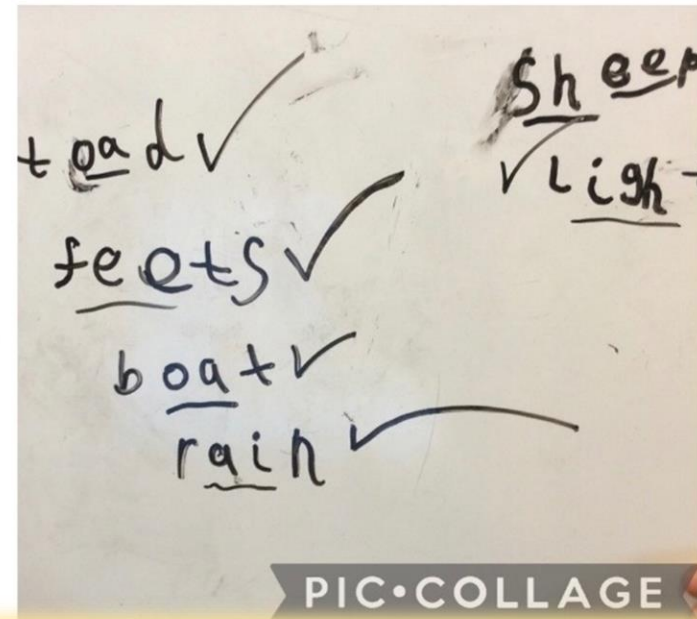 toad ✓
feets ✓
boat ✓
rain ✓
sheep
✓ Ligh
PIC•COLLAGE